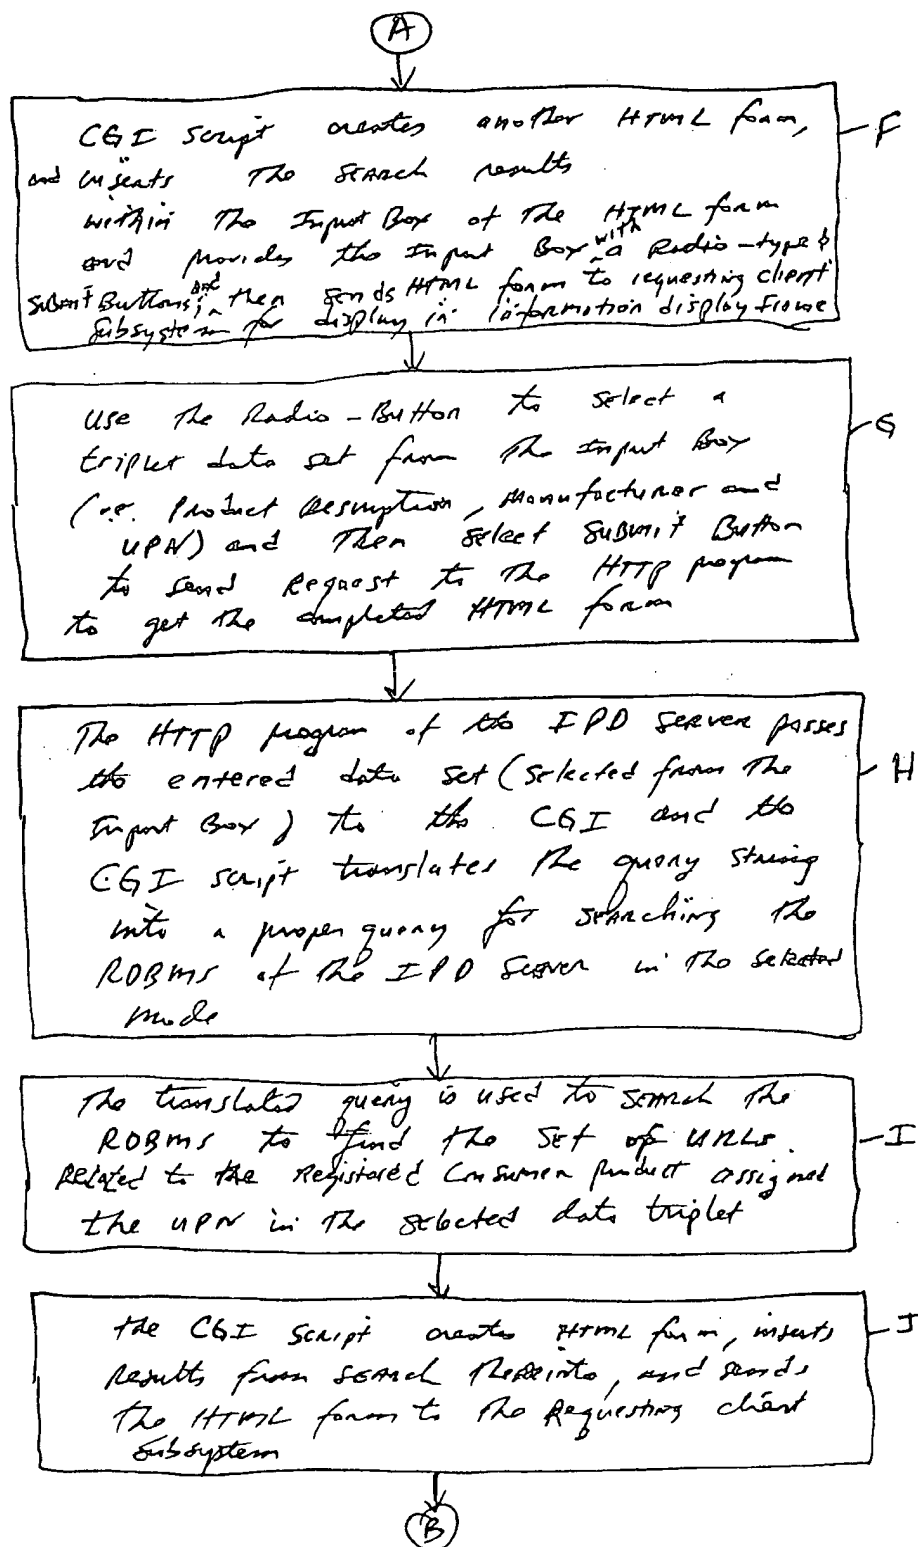 A
CGI Script creates another HTML form,
and inserts The SEARCH results
within The Input Box of The HTML form
and provides the Input Box with a Radio-type &
Submit Buttons; and then sends HTML form to requesting client
Subsystem for display in information display frame
F
Use The Radio-Button to select a
triplet data set from The Input Box
(i.e. Product Description, Manufacturer and
UPN) and Then select Submit Button
to send Request to The HTTP program
to get The completed HTML form
G
The HTTP program of the IPD Server passes
the entered data set (selected from The
Input Box) to the CGI and the
CGI script translates The query string
into a proper query for SEARCHing The
RDBMS of The IPD Server in The selected
mode
H
The translated query is used to SEARCH The
RDBMS to find the Set of URLs
Related to the Registered Consumer product assigned
the UPN in the selected data triplet
I
the CGI Script creates HTML form, inserts
Results from SEARCH Thereinto, and sends
The HTML form to The Requesting client
Subsystem
J
B